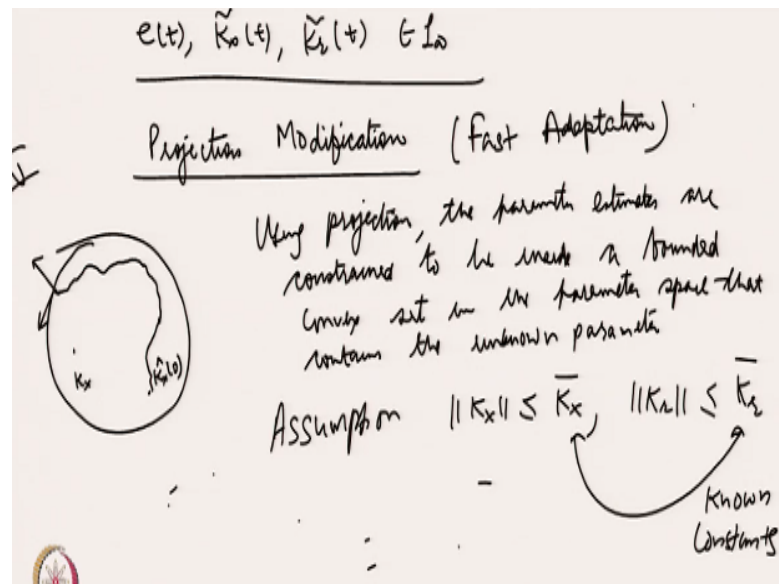 e(t), K̃x(t), K̃r(t) ∈ L∞
Projection Modification (Fast Adaptation)
Using projection, the parameter estimates are
constrained to be inside a bounded
convex set in the parameter space that
contains the unknown parameter
Kx
K̂x(0)
Assumption ||Kx|| ≤ K̄x, ||Kr|| ≤ K̄r
Known
Constants